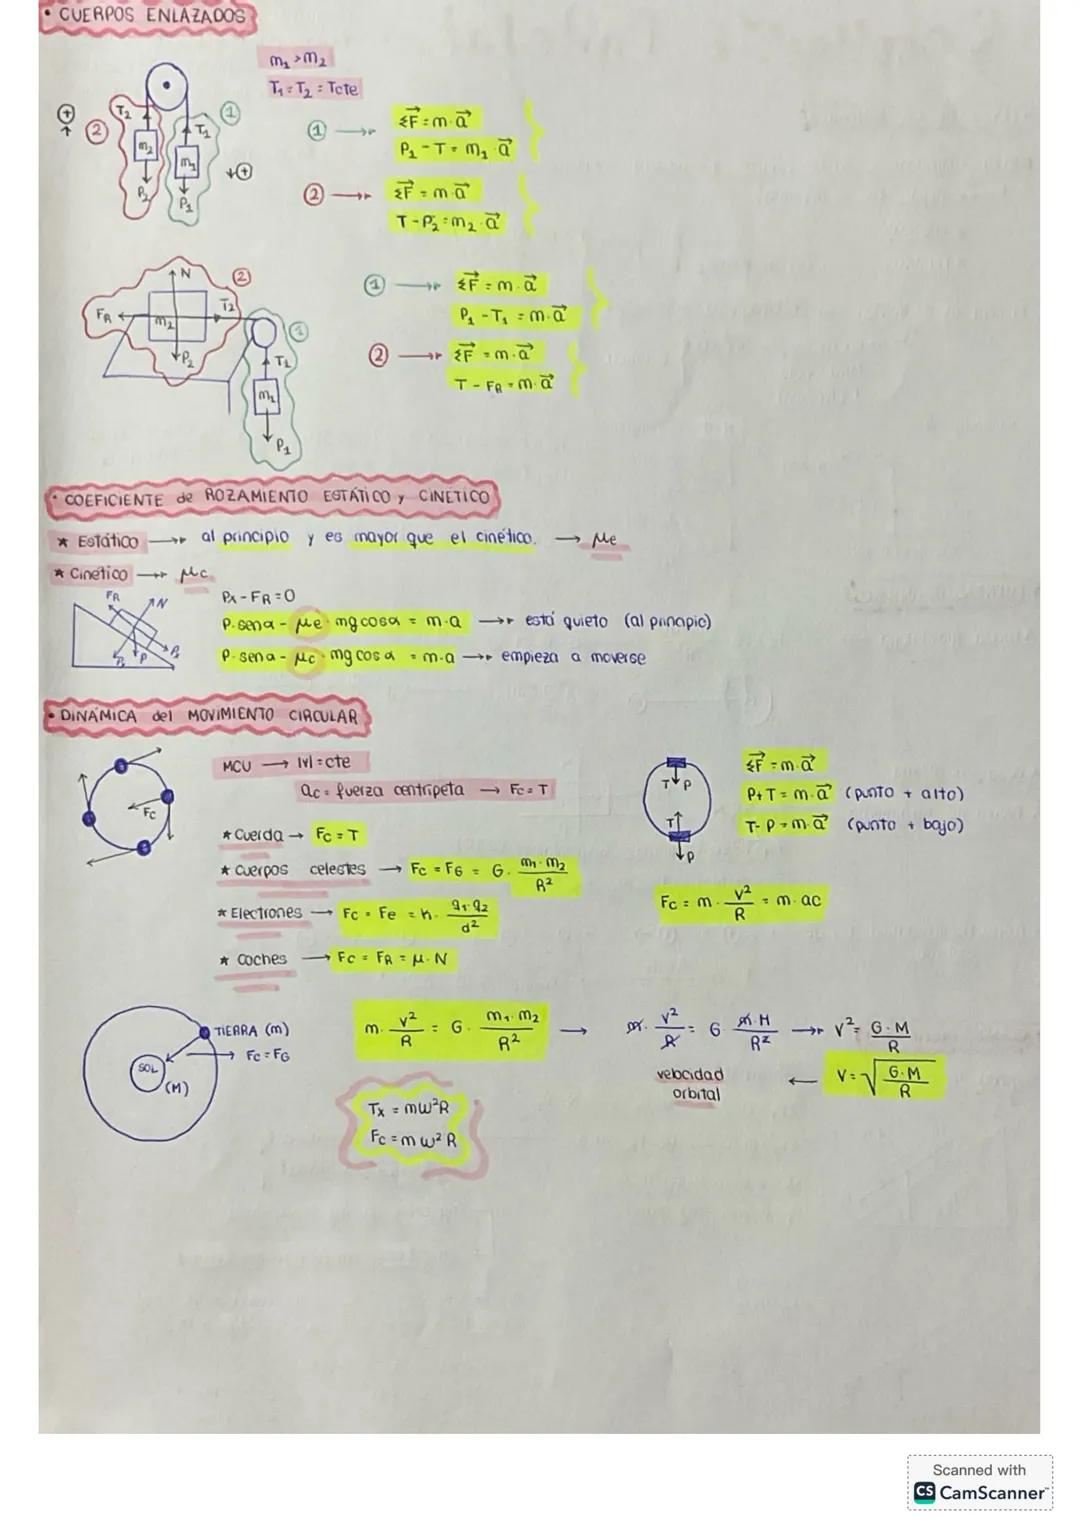 • CUERPOS ENLAZADOS
m₁ > m₂
T₁ = T₂ = Tcte
① → ΣF⃗ = m·a⃗
P₁ - T = m₁·a⃗
② → ΣF⃗ = m·a⃗
T - P₂ = m₂·a⃗
T₂ ② m₂ P₂
T₁ ① m₁ P₁
① → ΣF⃗ = m·a⃗
P₁ - T₁ = m·a⃗
② → ΣF⃗ = m·a⃗
T - FR = m·a⃗
N ②
FR m₂ T₂
P₂
① T₁
m₁
P₁
• COEFICIENTE de ROZAMIENTO ESTÁTICO y CINÉTICO
* Estático → al principio y es mayor que el cinético. → μe
* Cinético → μc
FR N
P Px
Px - FR = 0
P·senα - μe·mgcosα = m·a → está quieto (al principio)
P·senα - μc·mgcosα = m·a → empieza a moverse
• DINÁMICA del MOVIMIENTO CIRCULAR
Fc
MCU → |v| = cte
ac = fuerza centrípeta → Fc = T
* Cuerda → Fc = T
* Cuerpos celestes → Fc = FG = G· m₁·m₂ / R²
* Electrones → Fc = Fe = k· q₁·q₂ / d²
* Coches → Fc = FR = μ·N
T P
T
P
ΣF⃗ = m·a⃗
P+T = m·a⃗ (punto + alto)
T-P = m·a⃗ (punto + bajo)
Fc = m· v²/R = m·ac
TIERRA (m)
Fc = FG
SOL
(M)
m· v²/R = G· m₁·m₂/R² → m· v²/R = G· m·M/R² → v² = G·M/R
velocidad orbital ← V = √(G·M/R)
Tx = mω²R
Fc = mω²R
Scanned with
CS CamScanner